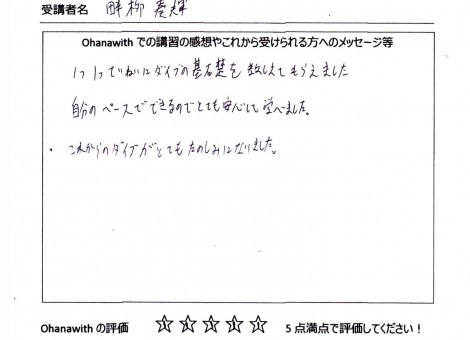 受講者名 畔柳 彦輝
Ohanawith での講習の感想やこれから受けられる方へのメッセージ等
1つ1つていねいにダイブの基石楚を教しえてもらえました
自分のペースでできるのでとても安心して学べました。
・これからのダイブがとてもたのしみになりました。
Ohanawith の評価 ☆☆☆☆☆ 5点満点で評価してください！